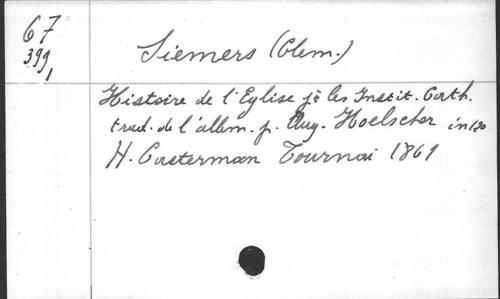 67
399,
Siemers (Clem.)
Histoire de l'Eglise jr les Instit. Cath.
trad. de l'allem. p. Aug. Hoelscher in 120
H. Casterman Tournai 1861